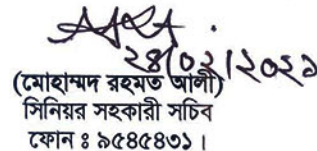 ২৪/০২/২০২১
(মোহাম্মদ রহমত আলী)
সিনিয়র সহকারী সচিব
ফোন ঃ ৯৫৪৫৪৩১।